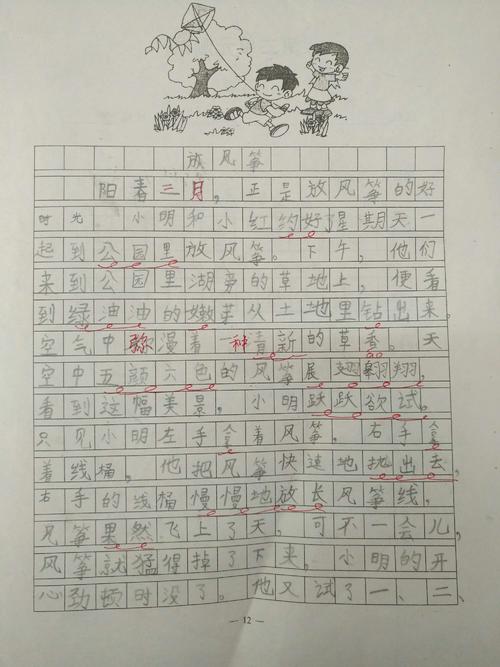 放风筝
阳春三月，正是放风筝的好
时光。小明和小红约好了星期天一
起到公园里放风筝。下午，他们
来到公园里湖旁的草地上，便看
到绿油油的嫩芽从土地里钻出来。
空气中弥漫着一种清新的草香。天
空中五颜六色的风筝展翅翱翔，
看到这幅美景。小明跃跃欲试。
只见小明左手拿着风筝。右手拿
着线桶，他把风筝快速地抛出去，
右手的线桶慢慢地放长风筝线，
风筝果然飞上了天，可不一会儿，
风筝就猛得掉了下来。小明的开
心劲顿时没了。他又试了一、二、
— 12 —